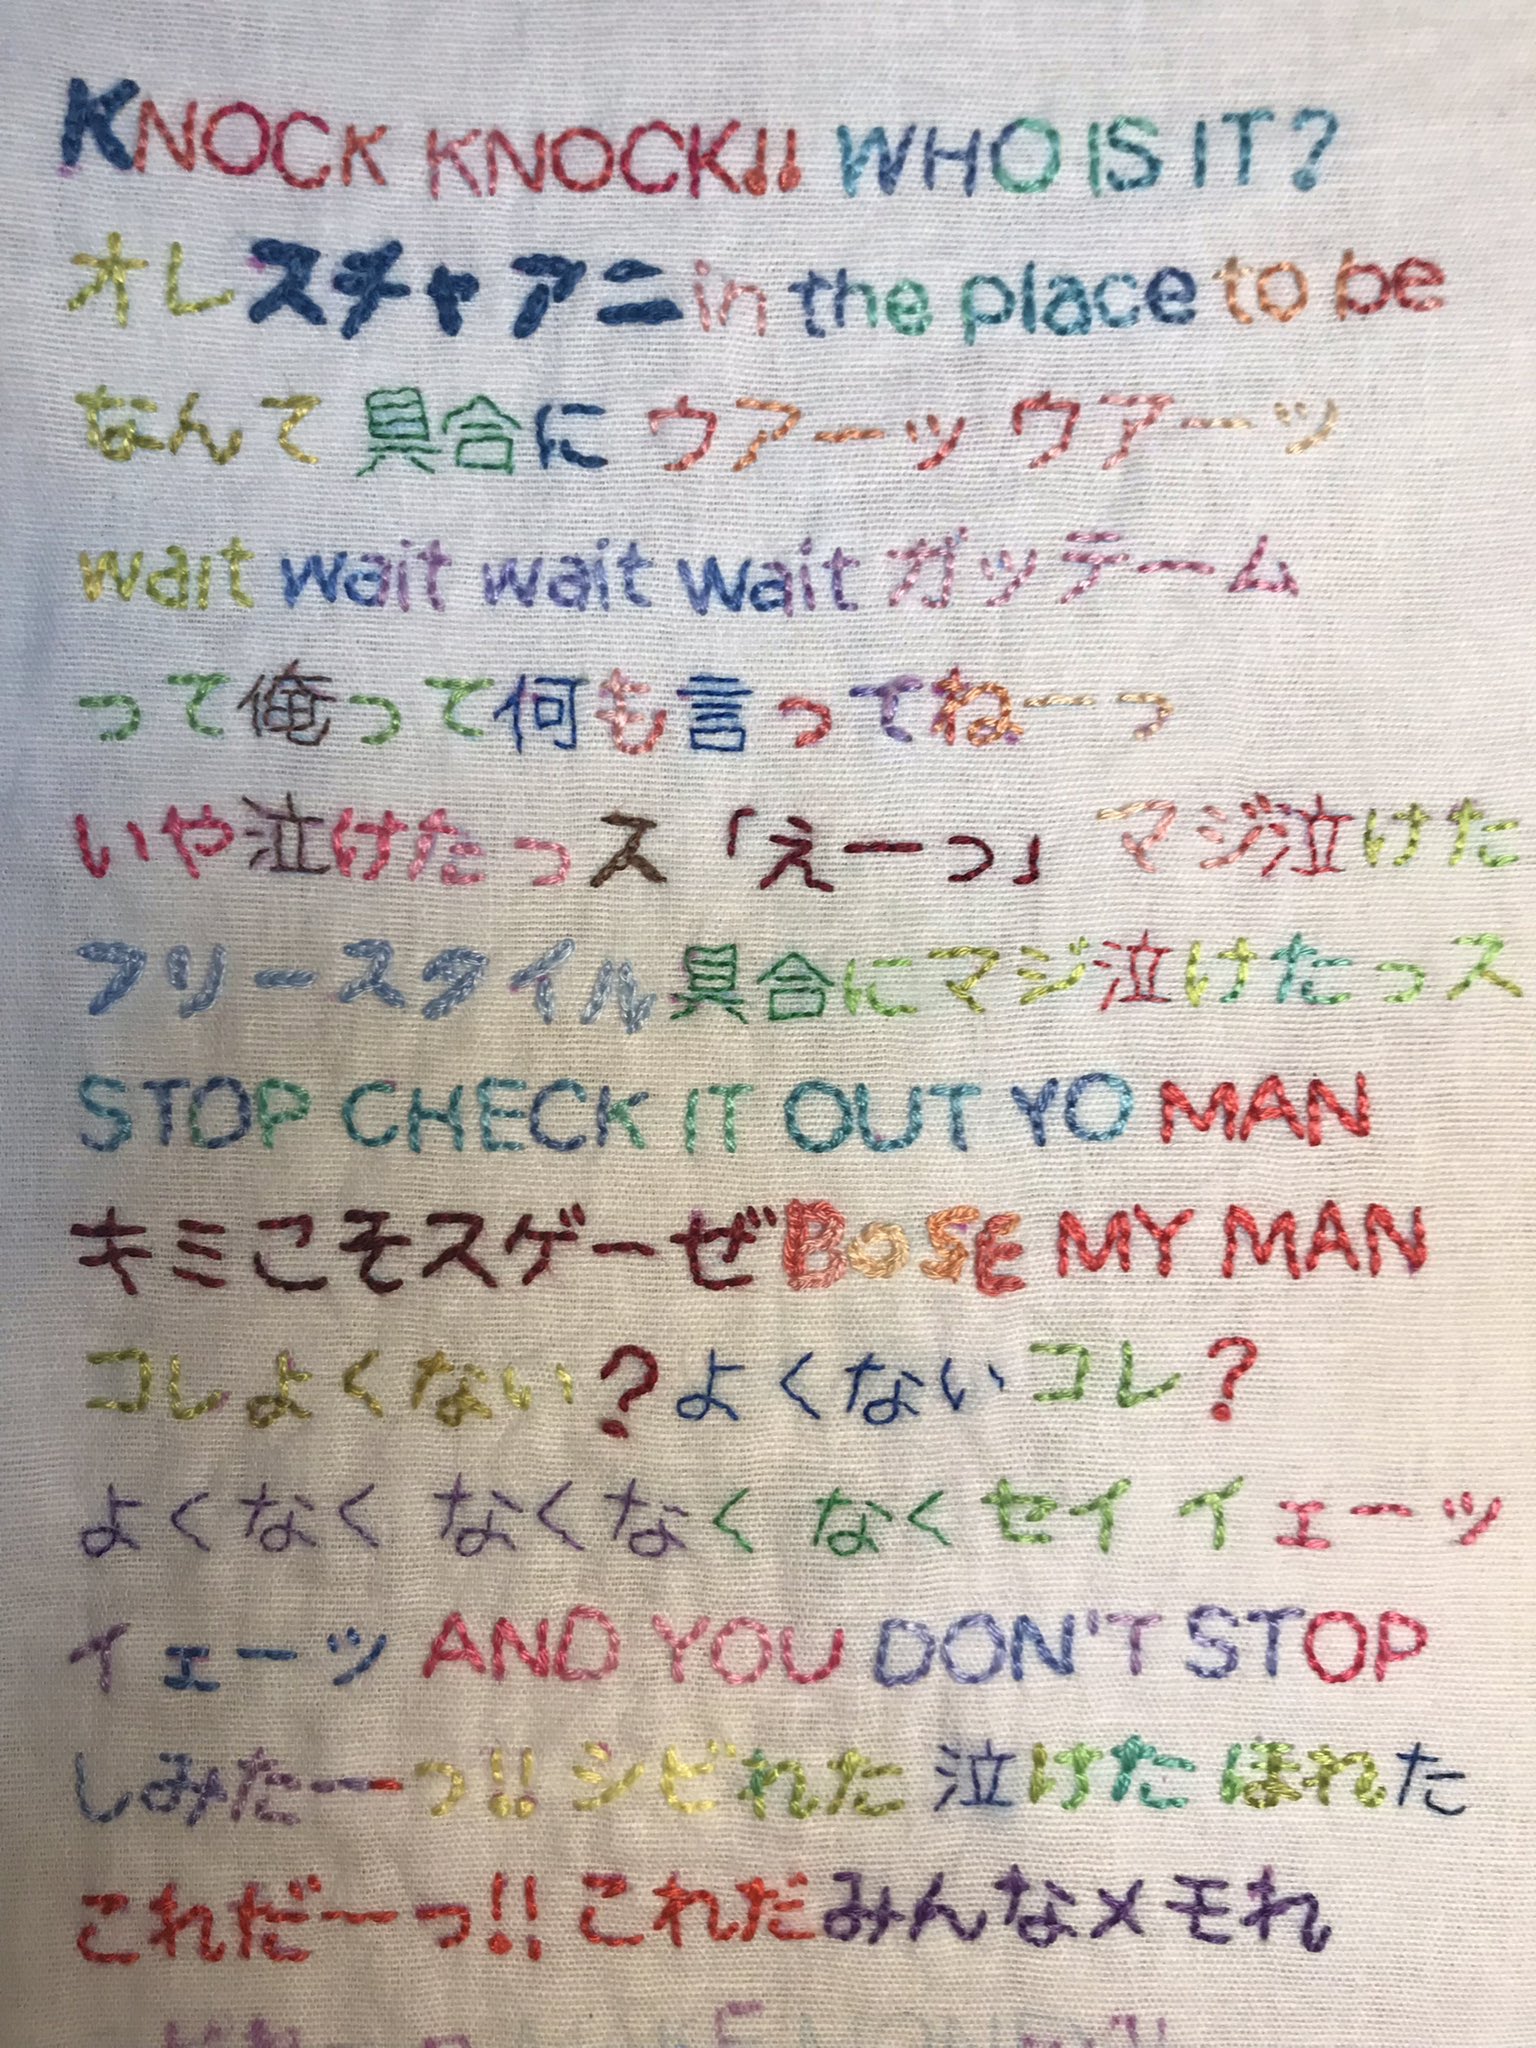 KNOCK KNOCK!! WHO IS IT?
オレスチャアニin the place to be
なんて 具合に ウアーッ ウアーッ
wait wait wait wait ガッデーム
って俺って何も言ってねーっ
いや泣けたっス「えーっ」 マジ泣けた
フリースタイル具合にマジ泣けたっス
STOP CHECK IT OUT YO MAN
キミこそスゲーぜBOSE MY MAN
コレよくない?よくないコレ?
よくなく なくなく なくセイ イェーッ
イェーッ AND YOU DON'T STOP
しみたーっ!! シビれた 泣けた ほれた
これだーっ!! これだみんなメモれ